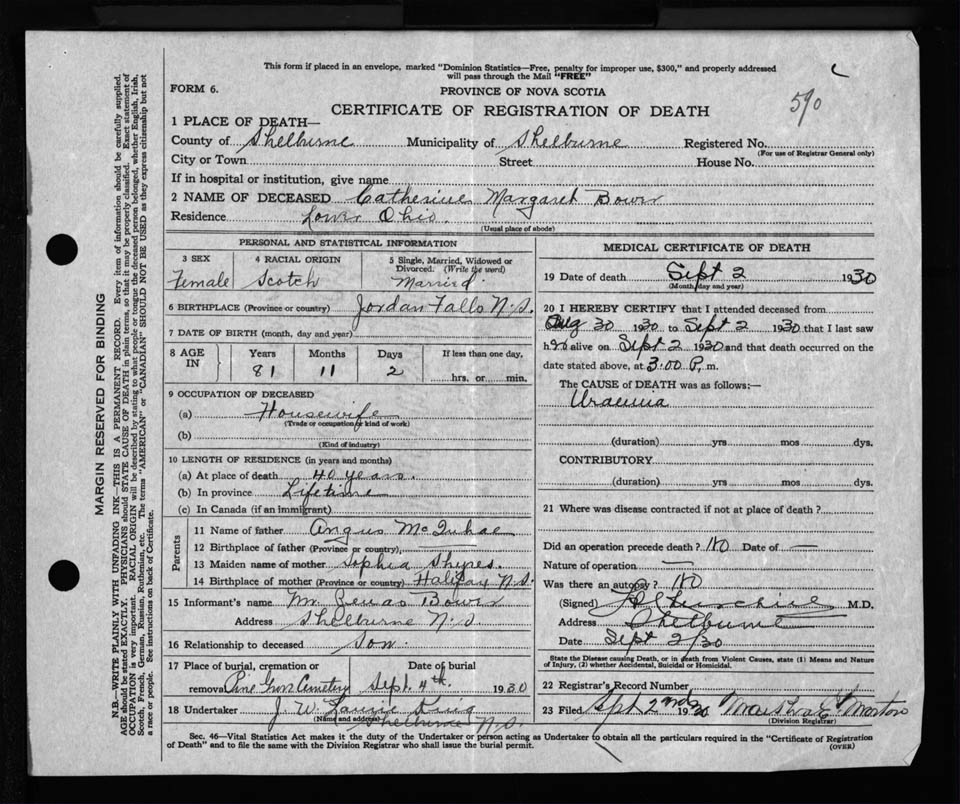 This form if placed in an envelope, marked "Dominion Statistics—Free, penalty for improper use, $300," and properly addressed
will pass through the Mail "FREE"
FORM 6.
PROVINCE OF NOVA SCOTIA
590
CERTIFICATE OF REGISTRATION OF DEATH
1 PLACE OF DEATH—
County of Shelburne Municipality of Shelburne Registered No.
(For use of Registrar General only)
City or Town Street House No.
If in hospital or institution, give name
2 NAME OF DECEASED Catherine Margaret Bower
Residence Lower Ohio.
(Usual place of abode)
PERSONAL AND STATISTICAL INFORMATION
3 SEX 4 RACIAL ORIGIN 5 Single, Married, Widowed or
Divorced. (Write the word)
Female Scotch Married.
6 BIRTHPLACE (Province or country) Jordan Falls N.S.
7 DATE OF BIRTH (month, day and year)
8 AGE IN Years Months Days If less than one day,
81 11 2 hrs. or min.
9 OCCUPATION OF DECEASED
(a) Housewife
(Trade or occupation or kind of work)
(b)
(Kind of industry)
10 LENGTH OF RESIDENCE (in years and months)
(a) At place of death 40 years.
(b) In province Lifetime
(c) In Canada (if an immigrant)
Parents
11 Name of father Angus McQuhae
12 Birthplace of father (Province or country)
13 Maiden name of mother Sophia
14 Birthplace of mother (Province or country) Halifax N.S.
15 Informant's name Mr. Bower
Address Shelburne N.S.
16 Relationship to deceased Son.
17 Place of burial, cremation or Date of burial
removal Pine Grove Cemetery Sept. 4th. 1930
18 Undertaker J. W.
(Name and address) Shelburne N.S.
MEDICAL CERTIFICATE OF DEATH
19 Date of death Sept 2 1930
(Month, day and year)
20 I HEREBY CERTIFY that I attended deceased from
Aug 30 1930 to Sept 2 1930 that I last saw
h alive on Sept 2 1930 and that death occurred on the
date stated above, at 3.00 P. m.
The CAUSE of DEATH was as follows:—
Uraemia
(duration) yrs mos dys.
CONTRIBUTORY
(duration) yrs mos dys.
21 Where was disease contracted if not at place of death?
Did an operation precede death? No Date of —
Nature of operation —
Was there an autopsy? No
(Signed) M.D.
Address Shelburne
Date Sept 2/30
State the Disease causing Death, or in death from Violent Causes, state (1) Means and Nature
of Injury, (2) whether Accidental, Suicidal or Homicidal.
22 Registrar's Record Number
23 Filed Sept 2nd 1930 Morton
(Division Registrar)
Sec. 46—Vital Statistics Act makes it the duty of the Undertaker or person acting as Undertaker to obtain all the particulars required in the "Certificate of Registration
of Death" and to file the same with the Division Registrar who shall issue the burial permit.
(OVER)
MARGIN RESERVED FOR BINDING
N.B.—WRITE PLAINLY WITH UNFADING INK—THIS IS A PERMANENT RECORD. Every item of information should be carefully supplied.
AGE should be stated EXACTLY. PHYSICIANS should STATE CAUSE OF DEATH in plain terms, so that it may be properly classified. Exact statement of
OCCUPATION is very important. RACIAL ORIGIN will be described by stating to what people or tongue the deceased person belonged, whether English, Irish,
Scotch, French, German, Russian, Ruthenian, etc. The terms "AMERICAN" or "CANADIAN" SHOULD NOT BE USED as they express citizenship but not
a race or people. See instructions on back of Certificate.